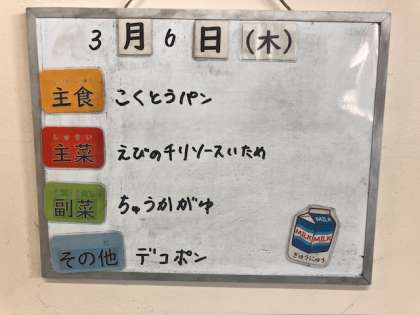 3月6日(木)
主食 こくとうパン
主菜 えびのチリソースいため
副菜 ちゅうかがゆ
その他 デコポン
MILK
MILK MILK
ぎゅうにゅう